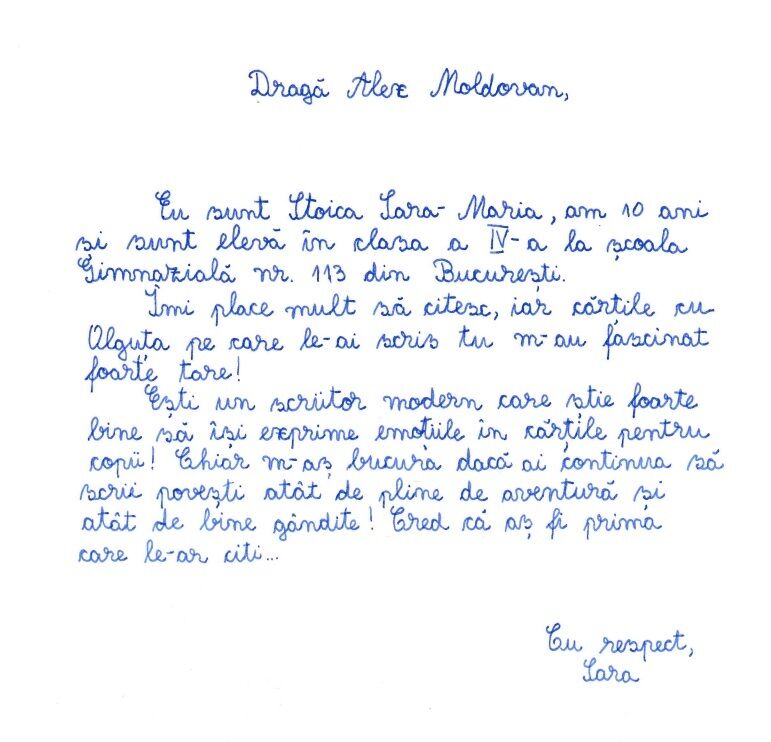 Dragă Alex Moldovan,
Eu sunt Stoica Sara-Maria, am 10 ani
și sunt elevă în clasa a IV-a la școala
Gimnazială nr. 113 din București.
Îmi place mult să citesc, iar cărțile cu
Olguța pe care le-ai scris tu m-au fascinat
foarte tare!
Ești un scriitor modern care știe foarte
bine să își exprime emoțiile în cărțile pentru
copii! Chiar m-aș bucura dacă ai continua să
scrii povești atât de pline de aventură și
atât de bine gândite! Cred că aș fi prima
care le-ar citi...
Cu respect,
Sara